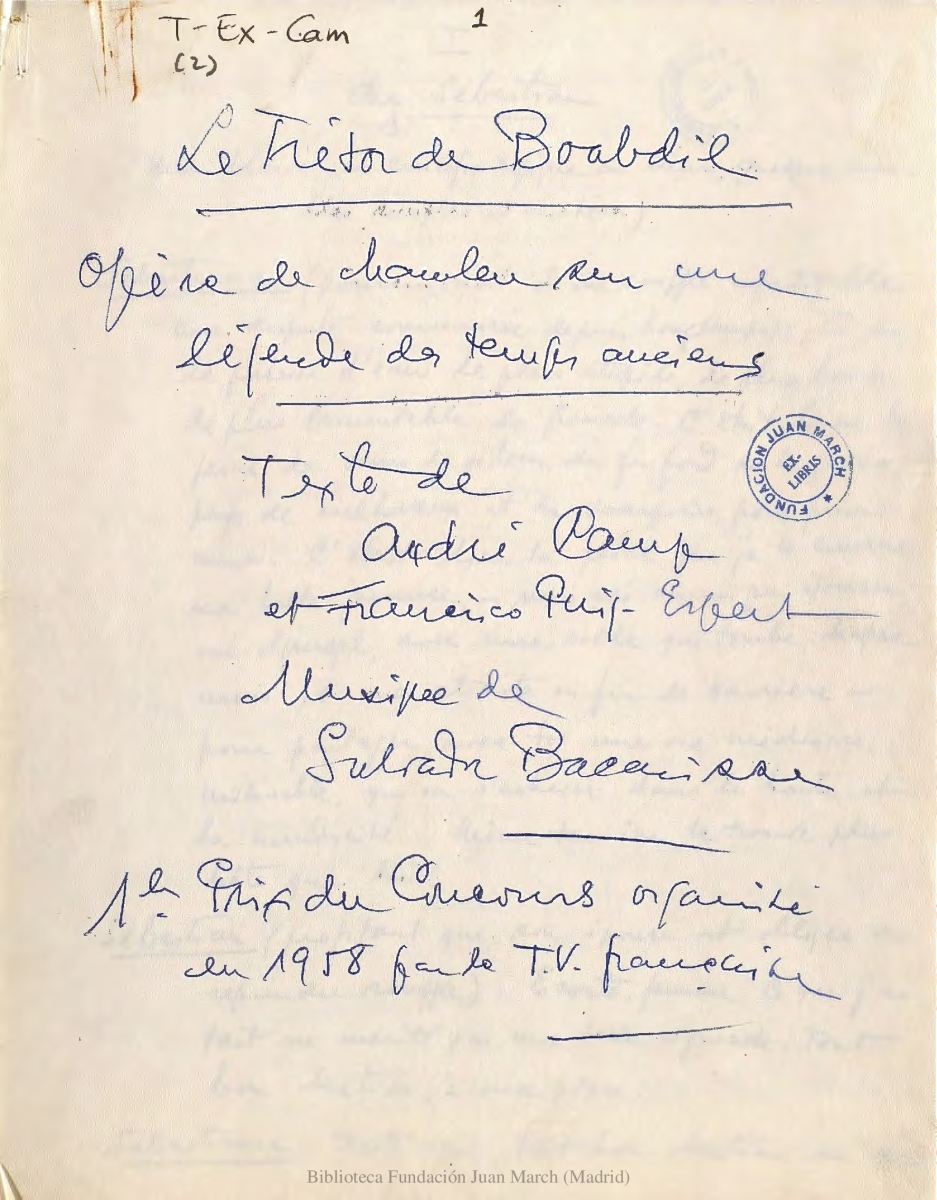 T-Ex-Cam
1
(2)
Le Trésor de Boabdil
Opéra de chambre sur une
légende des temps anciens
FUNDACION JUAN MARCH
EX-
LIBRIS
Texte de
André Camp
et Francisco Puig-Espert
Musique de
Salvador Bacarisse
1er Prix du Concours organisé
en 1958 par la T.V. française
Biblioteca Fundación Juan March (Madrid)